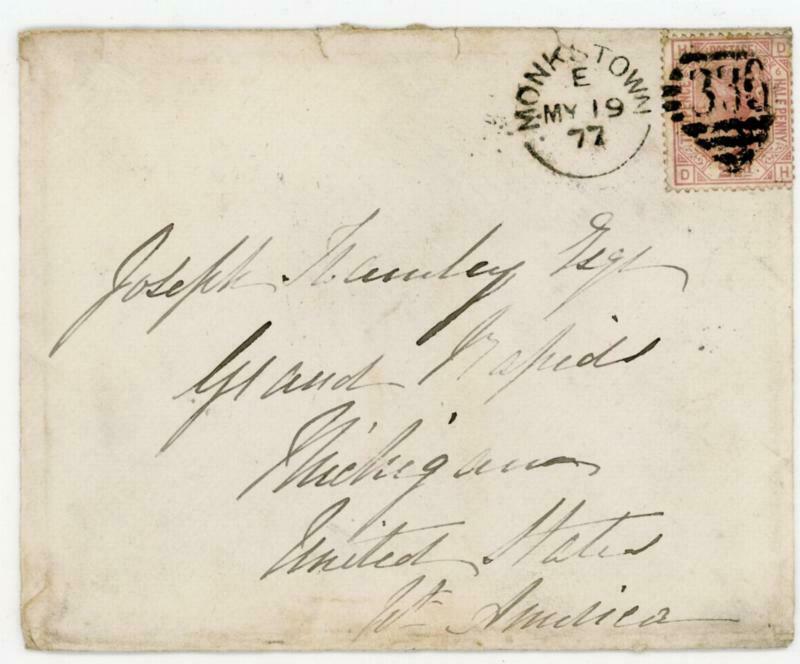 MONKSTOWN
E
MY 19
77
H D
POSTAGE
6
HALF PENNY
D H
Joseph Hamley Esqr
Grand Rapids
Michigan
United States
Nth America